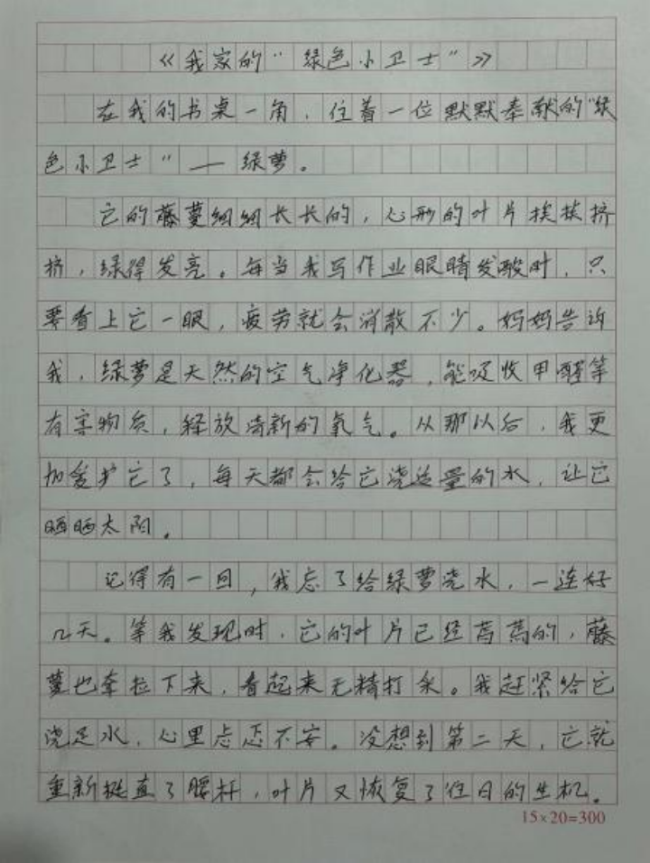 《我家的“绿色小卫士”》
在我的书桌一角，住着一位默默奉献的“绿
色小卫士”——绿萝。
它的藤蔓细细长长的，心形的叶片挨挨挤
挤，绿得发亮。每当我写作业眼睛发酸时，只
要看上它一眼，疲劳就会消散不少。妈妈告诉
我，绿萝是天然的空气净化器，能吸收甲醛等
有害物质，释放清新的氧气。从那以后，我更
加爱护它了，每天都会给它浇适量的水，让它
晒晒太阳。
记得有一回，我忘了给绿萝浇水，一连好
几天。等我发现时，它的叶片已经蔫蔫的，藤
蔓也牵拉下来，看起来无精打采。我赶紧给它
浇足水，心里忐忑不安。没想到第二天，它就
重新挺直了腰杆，叶片又恢复了往日的生机。
15×20=300